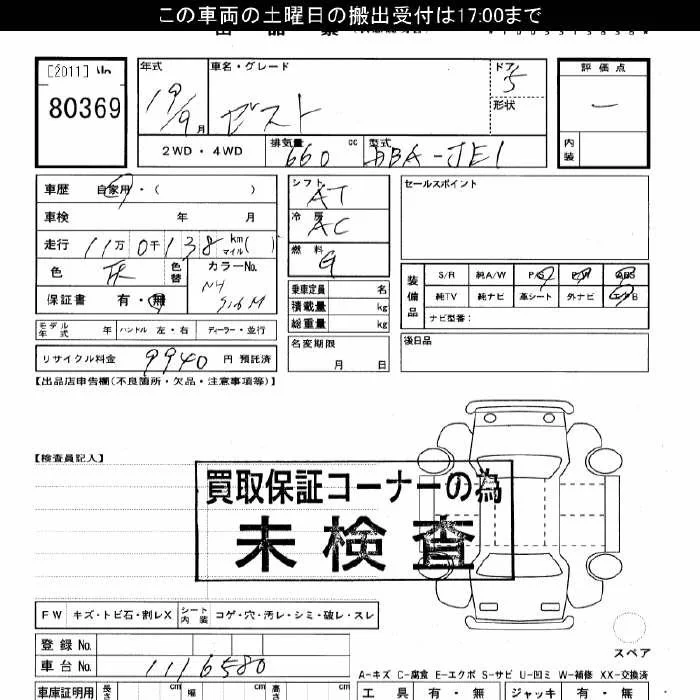 この車両の土曜日の搬出受付は17:00まで
[2011]
80369
年式 19/9月
車名・グレード ゼスト
ドア 5
形状
評価点 —
内装
2WD・4WD
排気量 660 cc
型式 DBA-JE1
車歴 自家用・( )
車検 年 月
走行 11万0千138 km マイル( )
色 灰 色替
カラーNo. NH
保証書 有・無
モデル年式 年 ハンドル 左・右 ディーラー・並行
リサイクル料金 9940 円 預託済
シフト AT
冷房 AC
燃料 G
乗車定員 名
積載量 kg
総重量 kg
名変期限 月 日
セールスポイント
装備品
S/R 純A/W P/S P/W ABS
純TV 純ナビ 革シート 外ナビ エアB
ナビ型番：
後日品
【出品店申告欄(不良箇所・欠品・注意事項等)】
【検査員記入】
買取保証コーナーの為
未検査
FW キズ・トビ石・割レX シート内装 コゲ・穴・汚レ・シミ・破レ・スレ
登録No.
車台No. 1116580
スペア
A-キズ C-腐食 E-エクボ S-サビ U-凹ミ W-補修 XX-交換済
車庫証明用 長さ cm 幅 cm 高さ cm
工具 有・無 ジャッキ 有・無